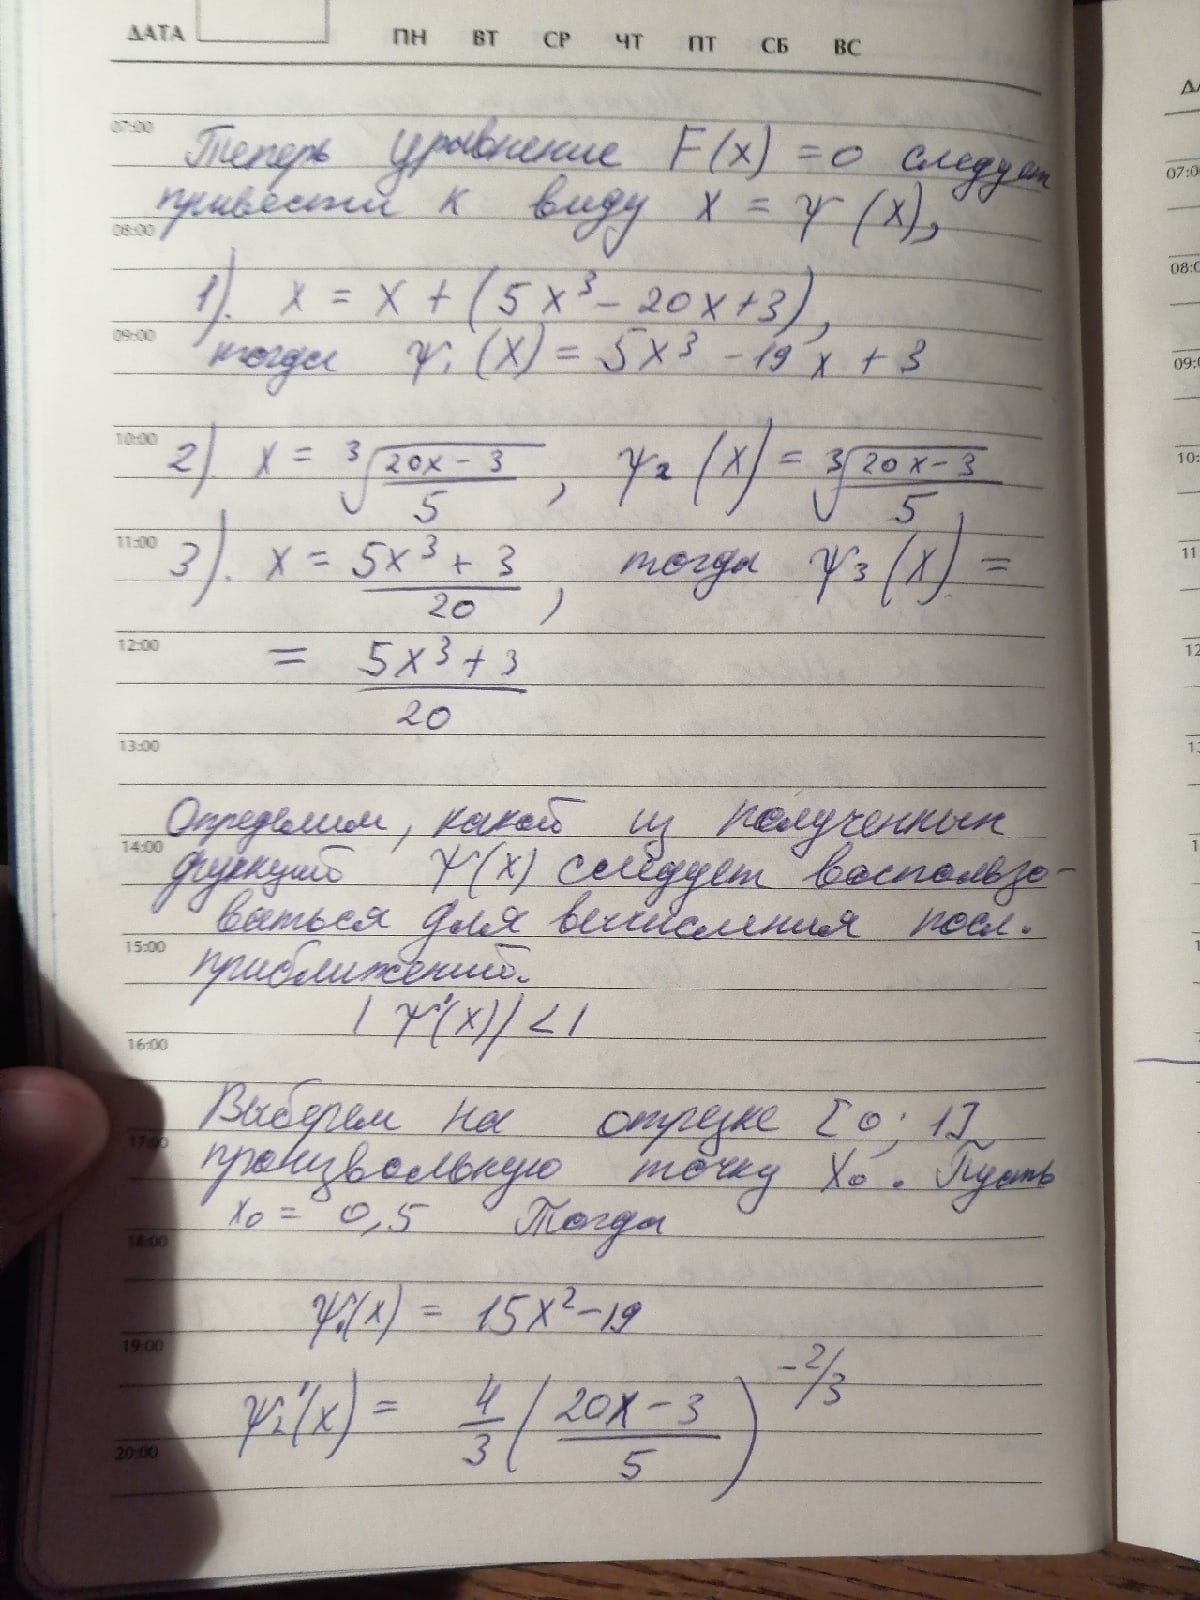 ДАТА ПН ВТ СР ЧТ ПТ СБ ВС
07:00
Теперь уравнение F(x) = 0 следует
привести к виду x = ψ(x),
08:00
1). x = x + (5x³ - 20x + 3),
09:00
тогда ψ₁(x) = 5x³ - 19x + 3
10:00
2). x = ∛((20x - 3)/5), ψ₂(x) = ∛((20x - 3)/5)
11:00
3). x = (5x³ + 3)/20, тогда ψ₃(x) =
12:00
= (5x³ + 3)/20
13:00
Определим, какой из полученных
14:00
функций ψ(x) следует воспользо-
ваться для вычисления посл.
15:00
приближений.
|ψ'(x)| < 1
16:00
Выберем на отрезке [0; 1]
17:00
произвольную точку x₀. Пусть
x₀ = 0,5 Тогда
18:00
ψ₁'(x) = 15x² - 19
19:00
ψ₂'(x) = 4/3 ((20x - 3)/5)^(-2/3)
20:00
ДА
07:0
08:0
09:0
10:
11
12